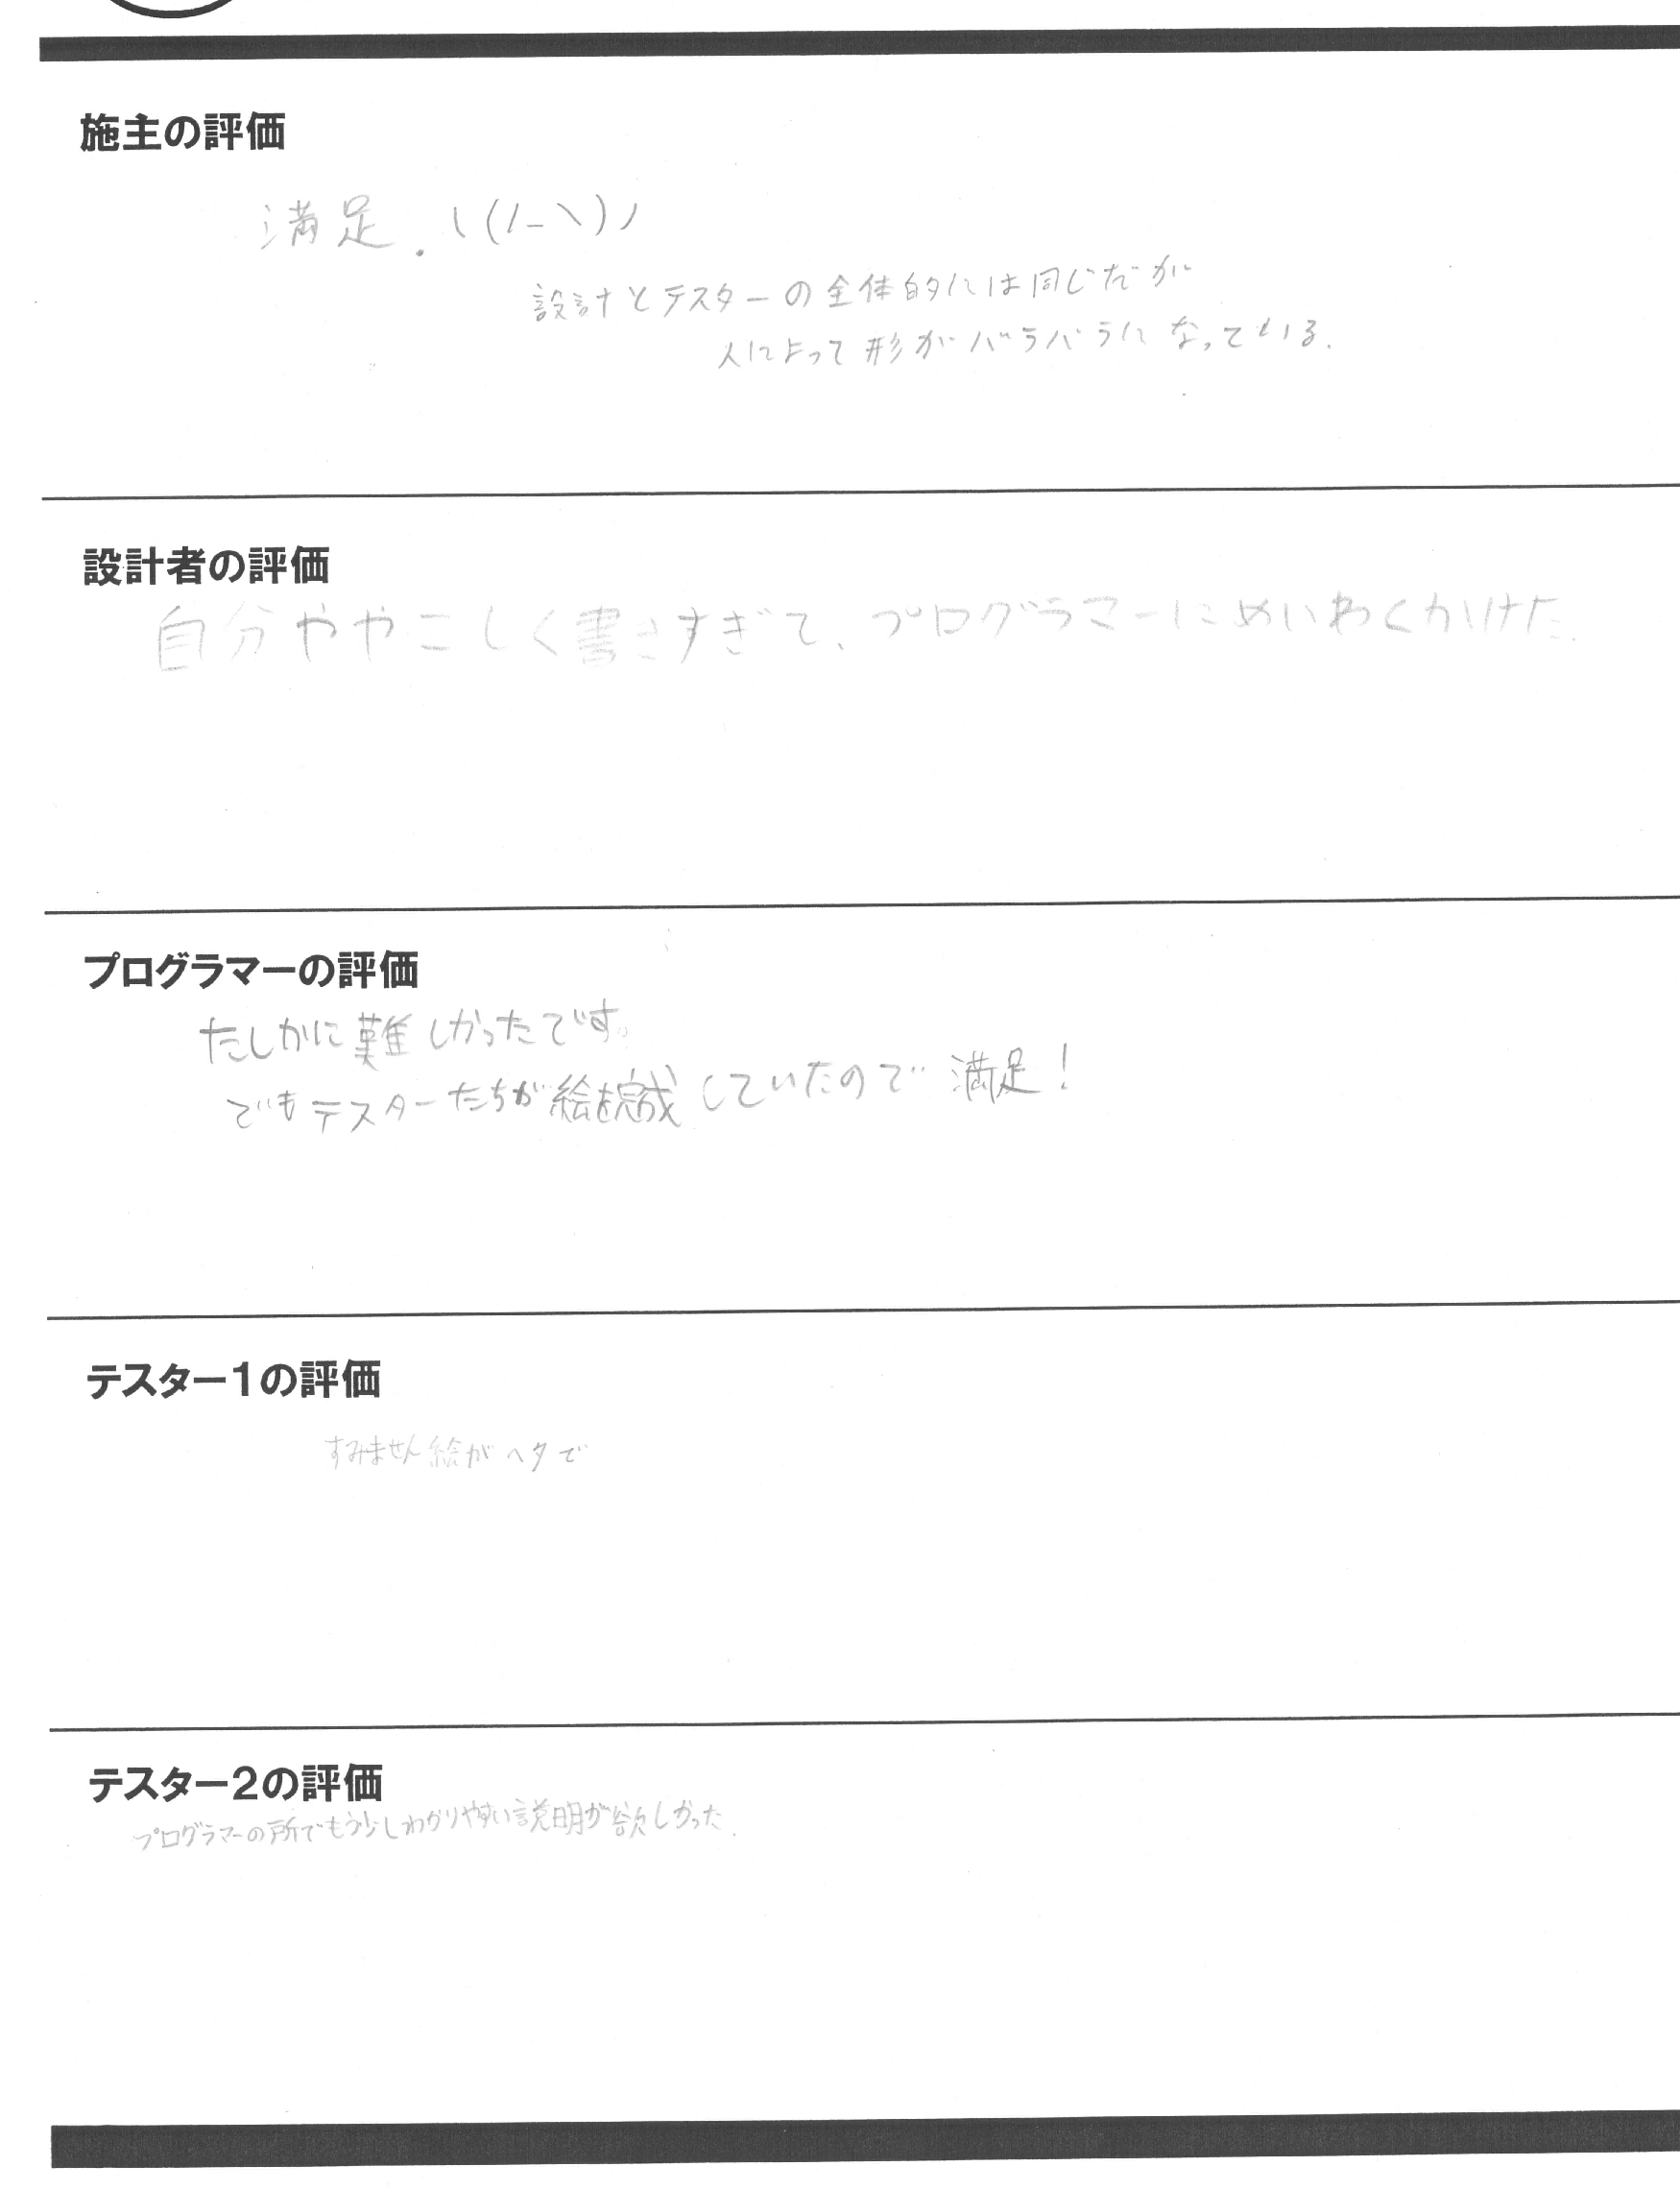 施主の評価
満足. \(/-\)ノ
設計とテスターの全体的には同じだが
人によって形がバラバラになっている.
設計者の評価
自分ややこしく書きすぎて、プログラマーにめいわくかけた.
プログラマーの評価
たしかに難しかったです。
でもテスターたちが絵を完成していたので満足!
テスター1の評価
すみません絵がヘタで
テスター2の評価
プログラマーの所でもう少しわかりやすい説明が欲しかった.